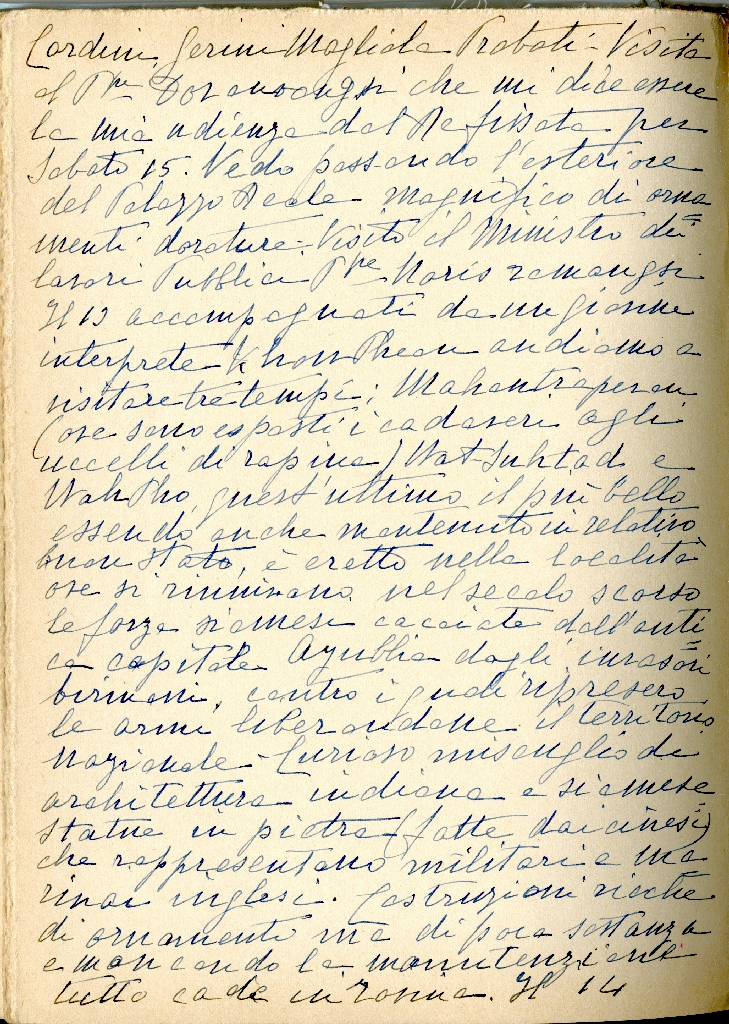 Cardini, Gerini Magliola Trabati - Visita
al Pne Devawongsi che mi dice essere
la mia udienza dal Re fissata per
Sabato 15. Vedo passando l'esteriore
del Palazzo Reale - magnifico di orna=
menti dorature. Visito il Ministro dei
lavori Pubblici Pne Naris
Il 13 accompagnati da un giovine
interprete Khon Phean andiamo a
visitare tre tempi; Mahan
(ove sono esposti i cadaveri agli
uccelli di rapina) Wat Suhtad e
Wah Pho, quest'ultimo il più bello
essendo anche mantenuto in relativo
buon stato, è eretto nella località
ove si riunivano nel secolo scorso
le forze siamesi cacciate dall'anti=
ca capitale Ayuthia dagli invasori
birmani, contro i quali ripresero
le armi liberandone il territorio
Nazionale - Curioso miscuglio di
architettura indiana e siamese
statue in pietra (fatte dai cinesi)
che rappresentano militari e ma=
rinai inglesi. Costruzioni ricche
di ornamenti ma di poca sostanza
e mancando la manutenzione
tutto cade in rovina. Il 14